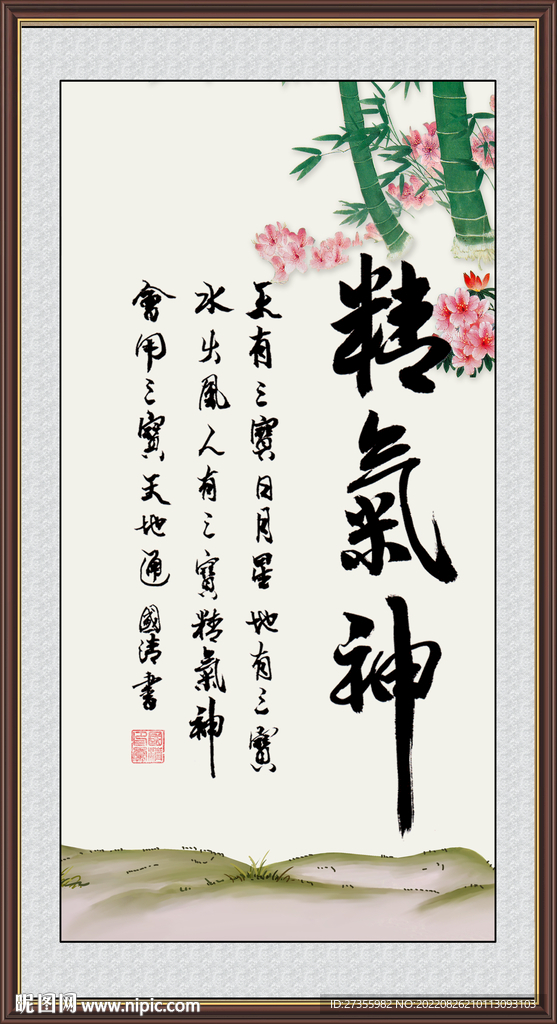 精氣神
天有三寶日月星地有三寶
水火風人有三寶精氣神
會用三寶天地通 國清書
昵图网 www.nipic.com
ID:27355982 NO:20220826210113093103